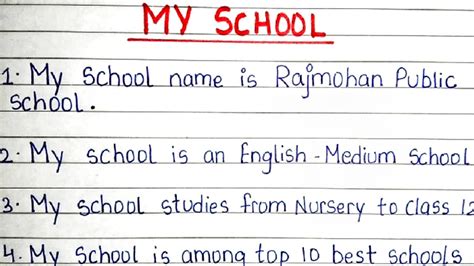 MY SCHOOL
1. My School name is Rajmohan Public
School.
2. My school is an English-Medium School
3. My school studies from Nursery to Class 12
4. My School is among top 10 best schools